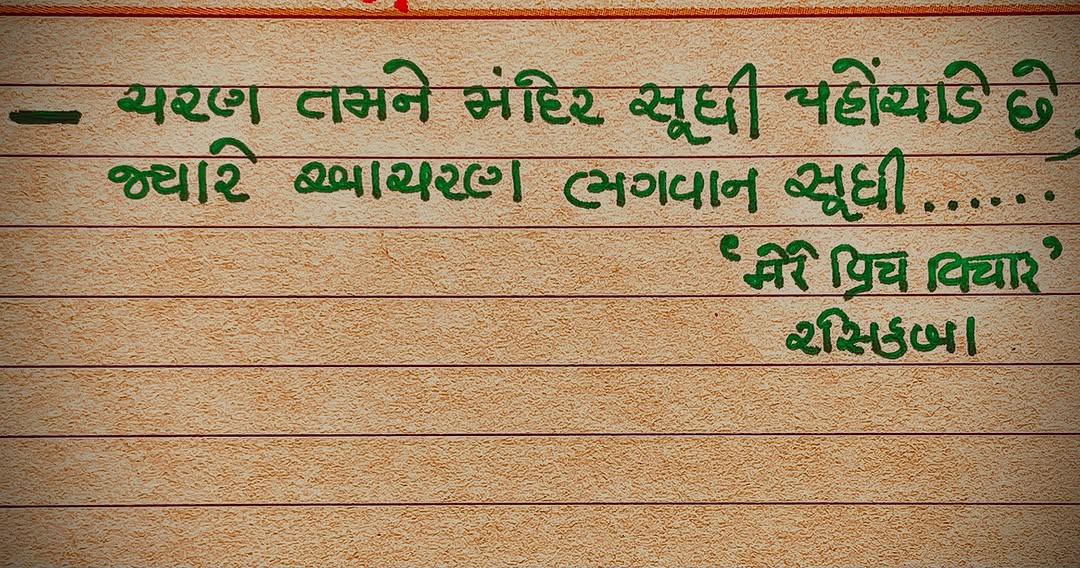 – ચરણ તમને મંદિર સૂધી પહોંચાડે છે,
જ્યારે આચરણ ભગવાન સૂધી......
‘મેરે પ્રિય વિચાર’
રસિકબા